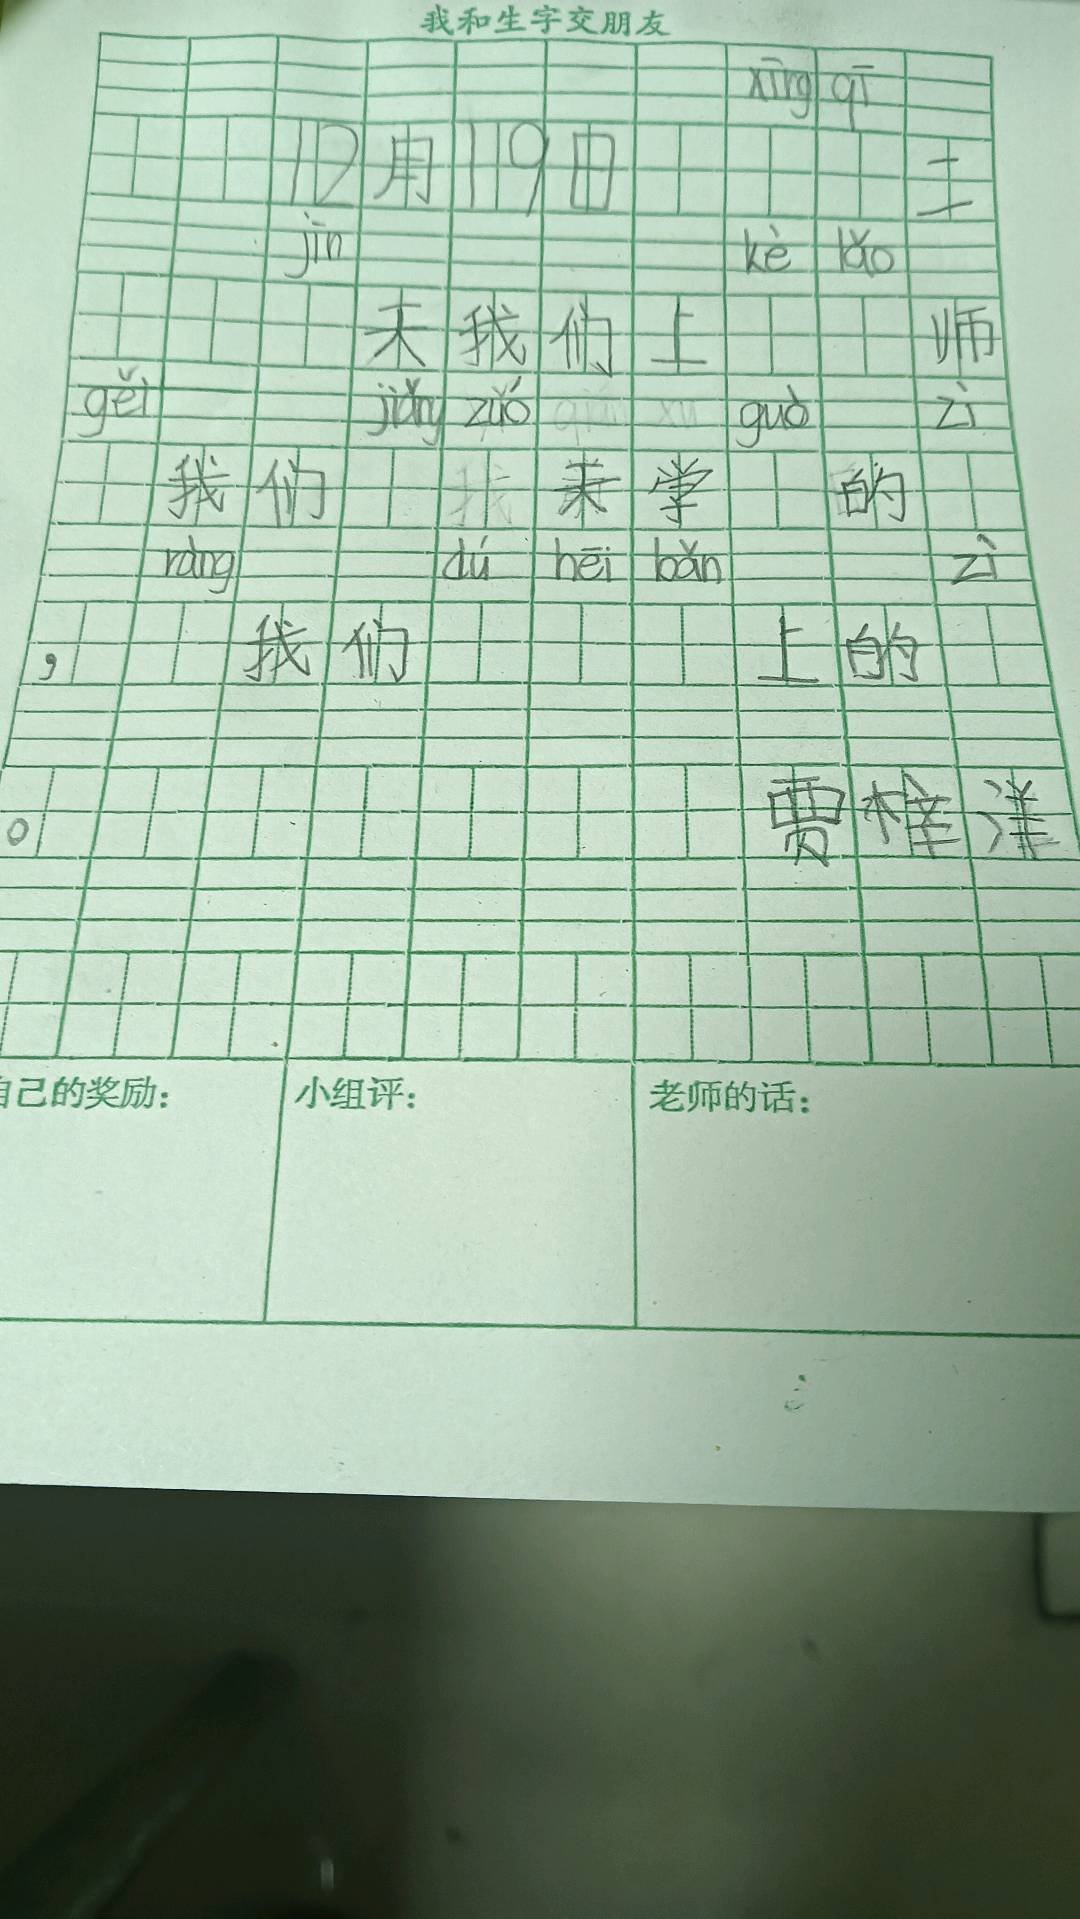 我和生字交朋友
xīng qī
12月19日 二
jīn kè lǎo
天我们上 师
gěi jiǎng zuó guò zì
我们 未学 的
ràng dú hēi bǎn zì
， 我们 上的
。 贾梓洋
自己的奖励： 小组评： 老师的话：